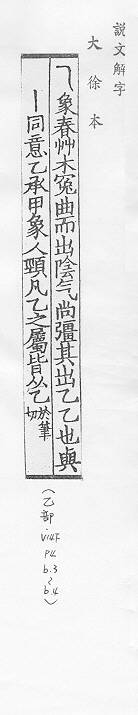 說文解字
大徐本
乁象春艸木冤曲而出陰气尚彊其出乙乙也與
丨同意乙承甲象人頸凡乙之屬皆从乙於筆切
（乙部．V14下
P4
b.3
~
b.4）